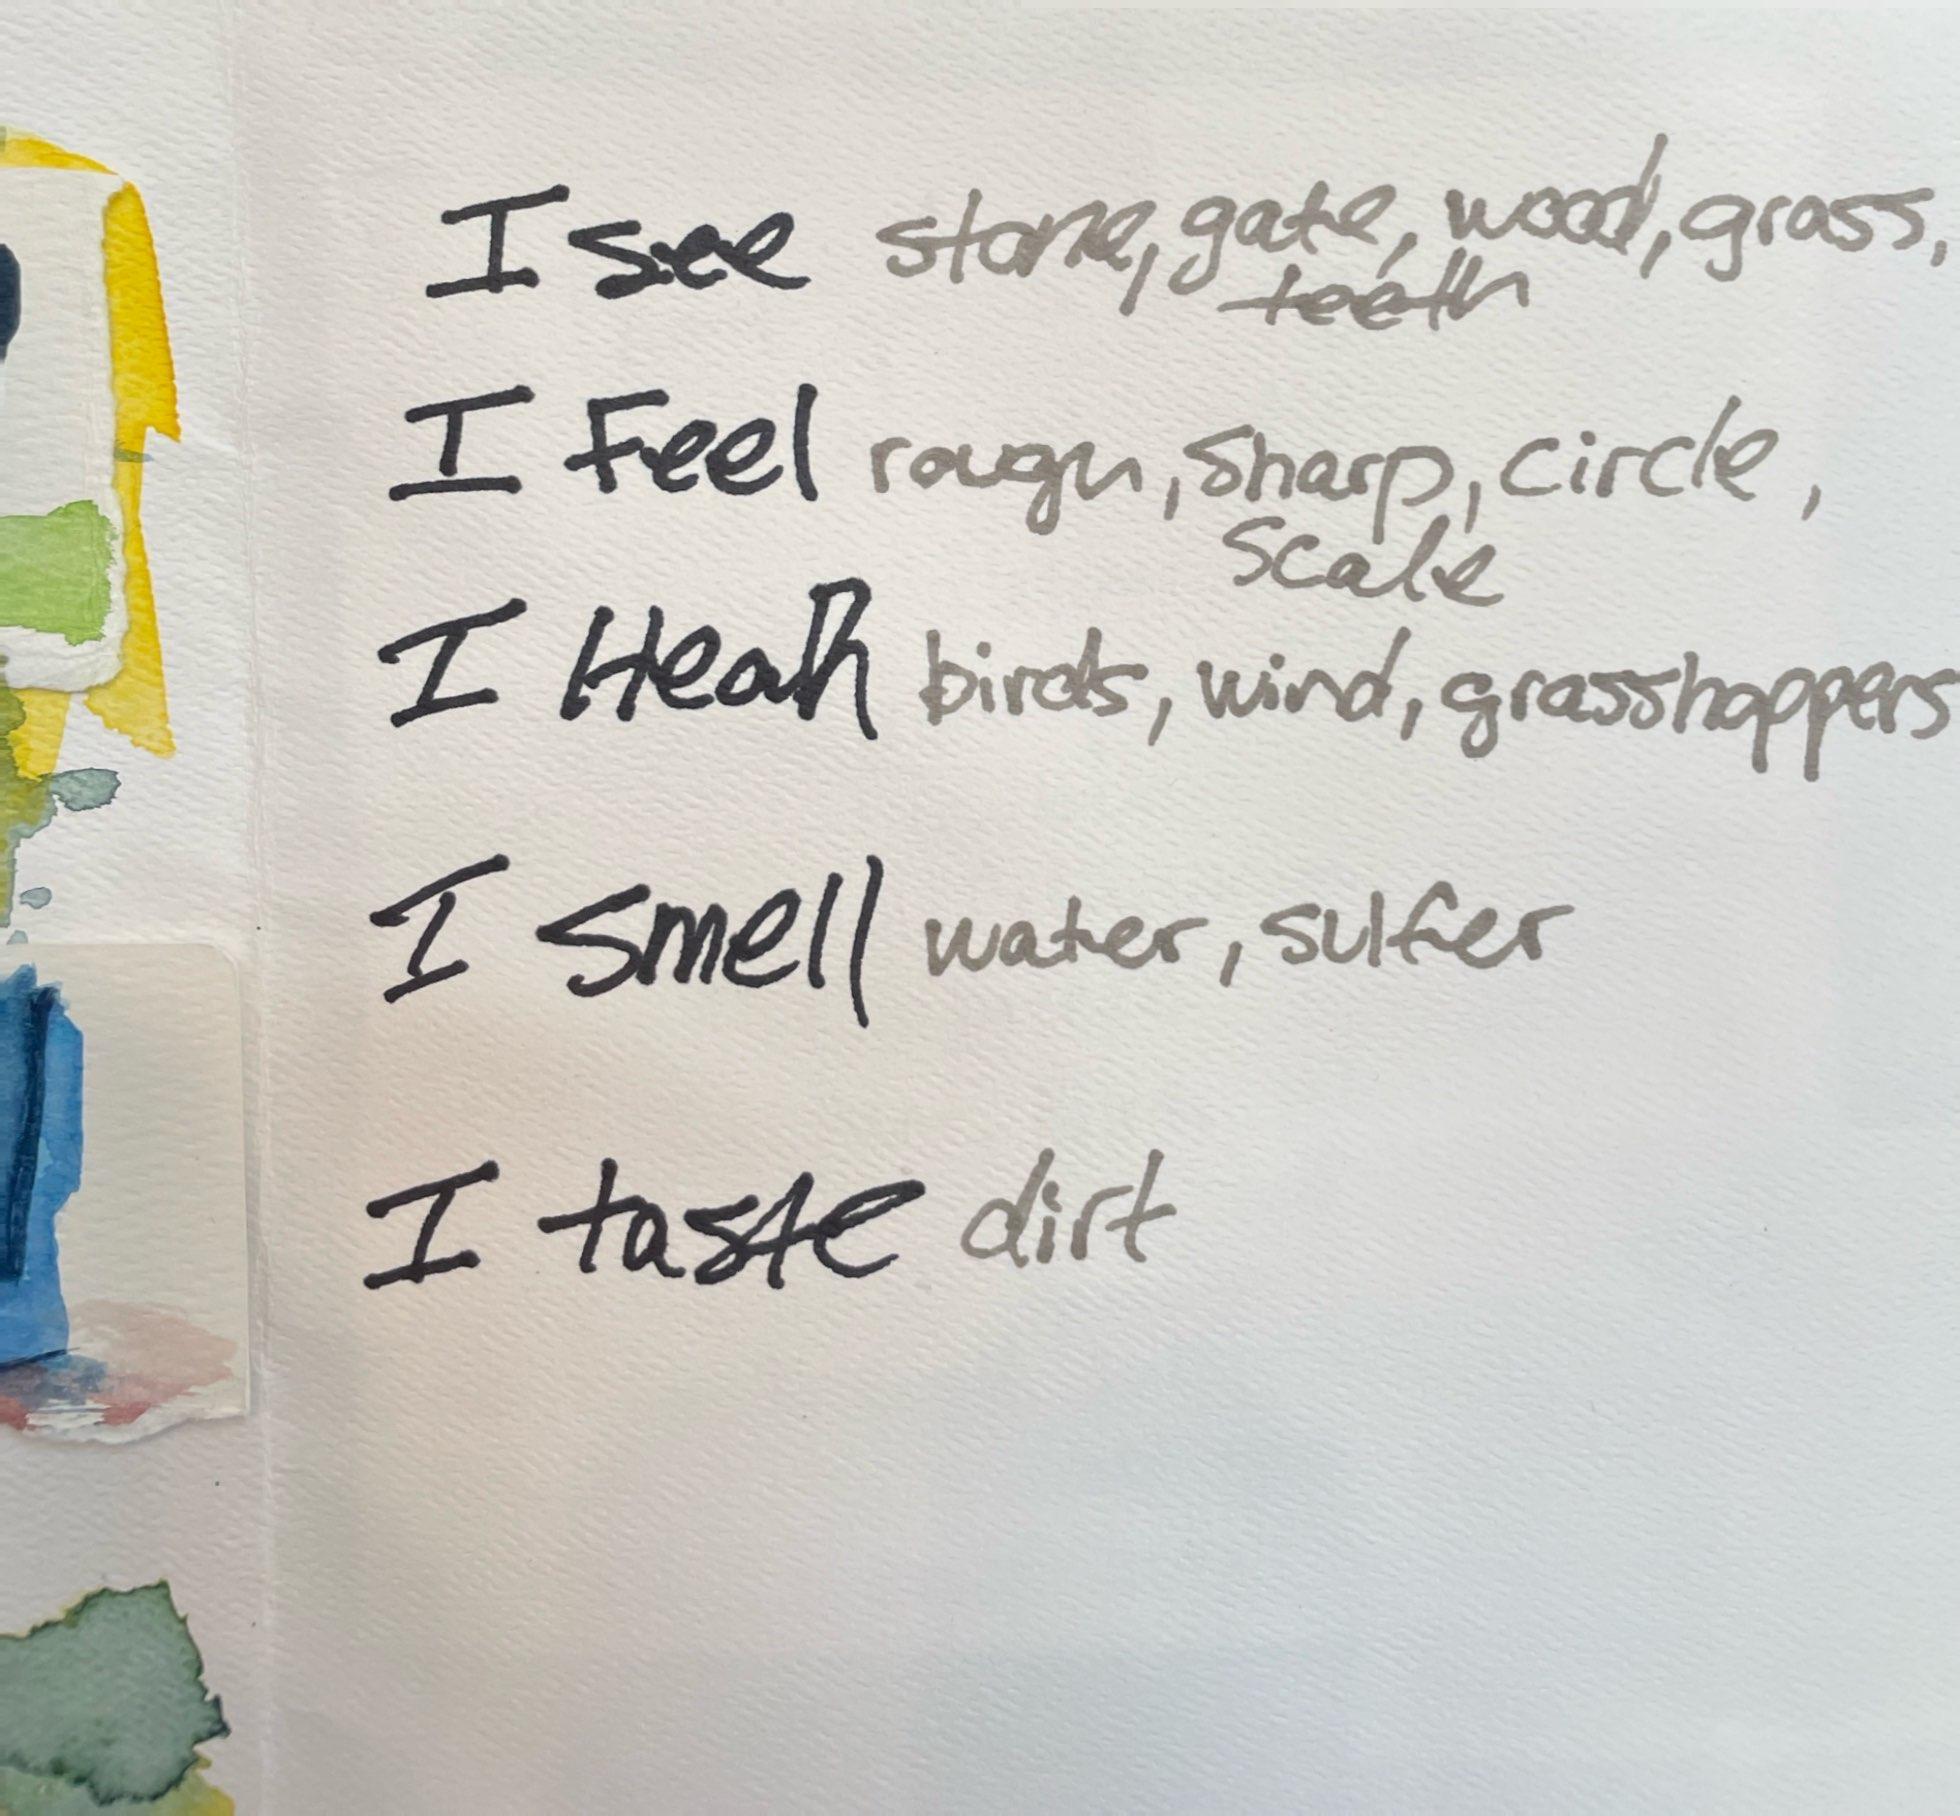 I see stone, gate, wood, grass,
teeth
I Feel rough, sharp, circle,
scale
I HeaR birds, wind, grasshoppers
I smell water, sulfer
I taste dirt